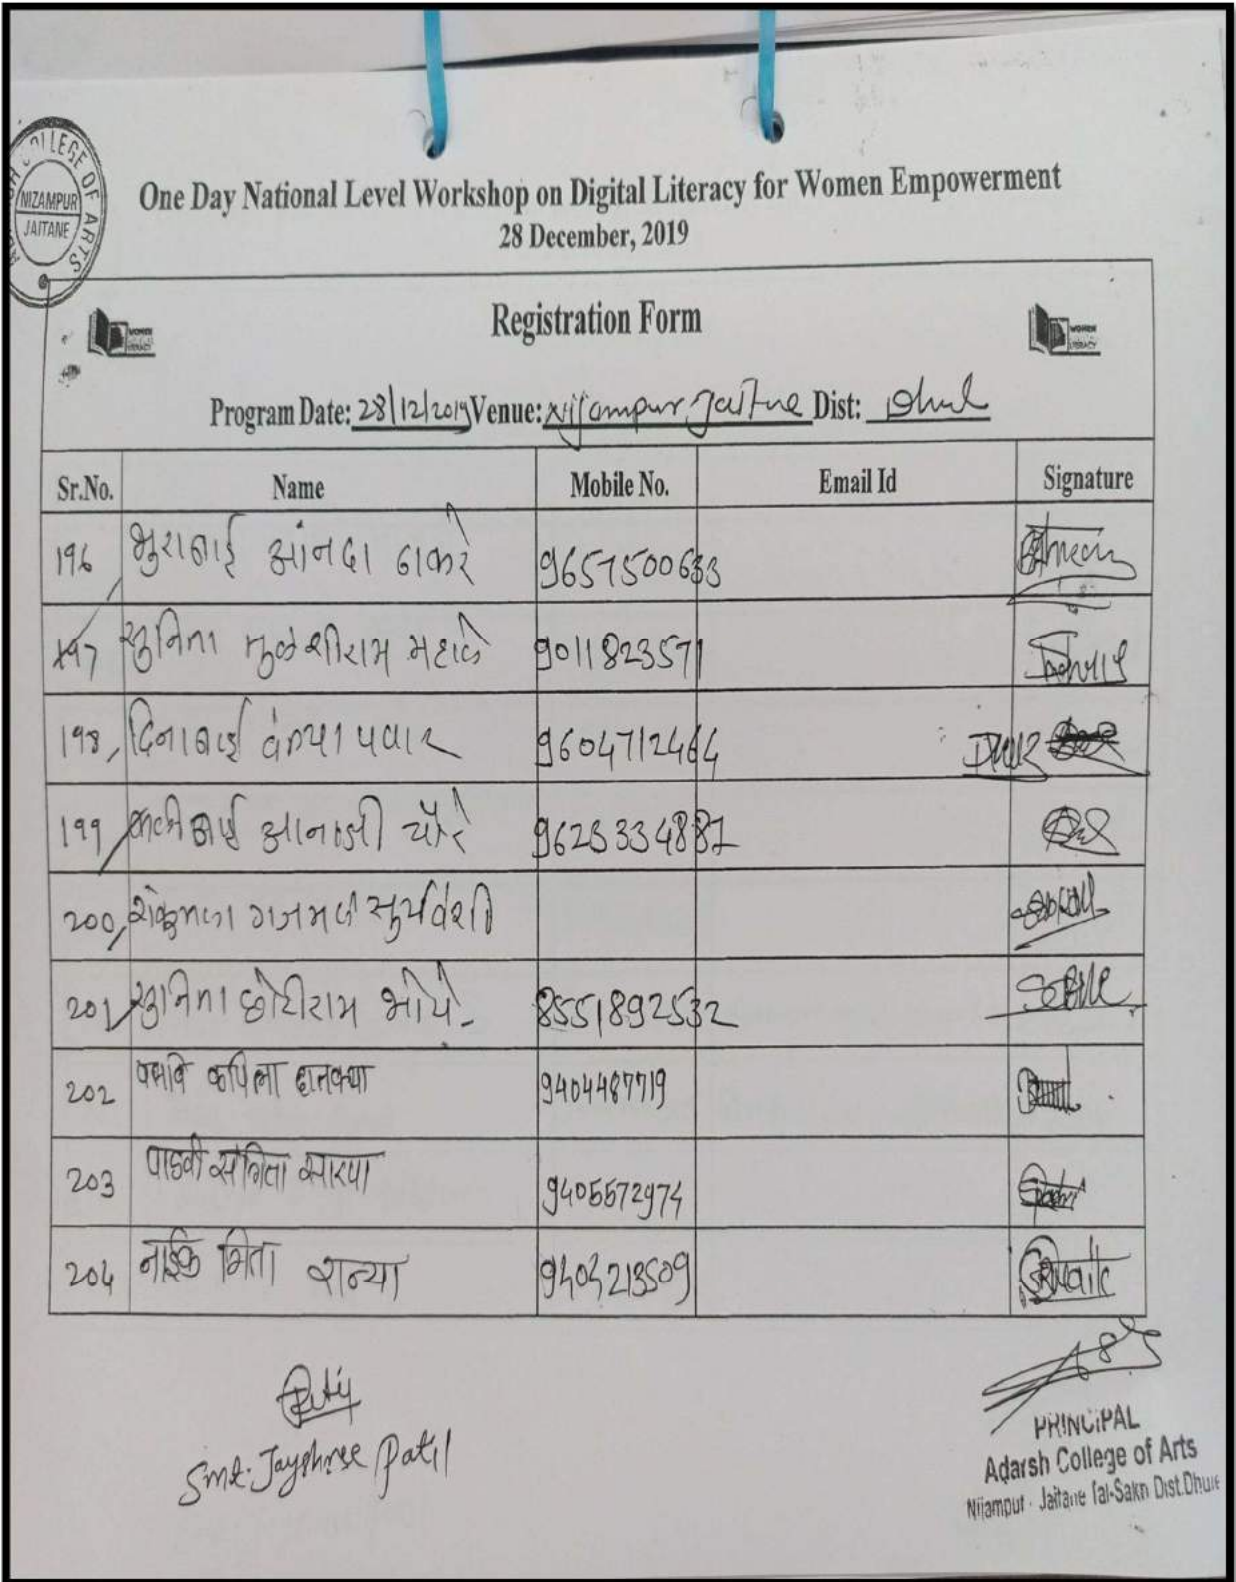 COLLEGE OF ARTS
NIZAMPUR
JAITANE
One Day National Level Workshop on Digital Literacy for Women Empowerment
28 December, 2019
Registration Form
WOMEN
LITERACY
WOMEN
LITERACY
Program Date: 28/12/2019 Venue: Nijampur Jaitne Dist: Dhul
Sr.No. Name Mobile No. Email Id Signature
196 भुराबाई आंनदा ठाकरे 9657500633
197 सुनिता 9011823571
198, दिनाबाई पवार 9604712464
199 9623334887
200, गजमल सुर्यवंशी
201 सुनिता छोटीराम भोये 8551892532
202 कपिला 9404487719
203 पाडवी संगिता 9405572974
204 नाईक गिता शन्या 9404213509
Smt. Jayshree Patil
PRINCIPAL
Adarsh College of Arts
Nijampur - Jaitane Tal-Sakri Dist.Dhule